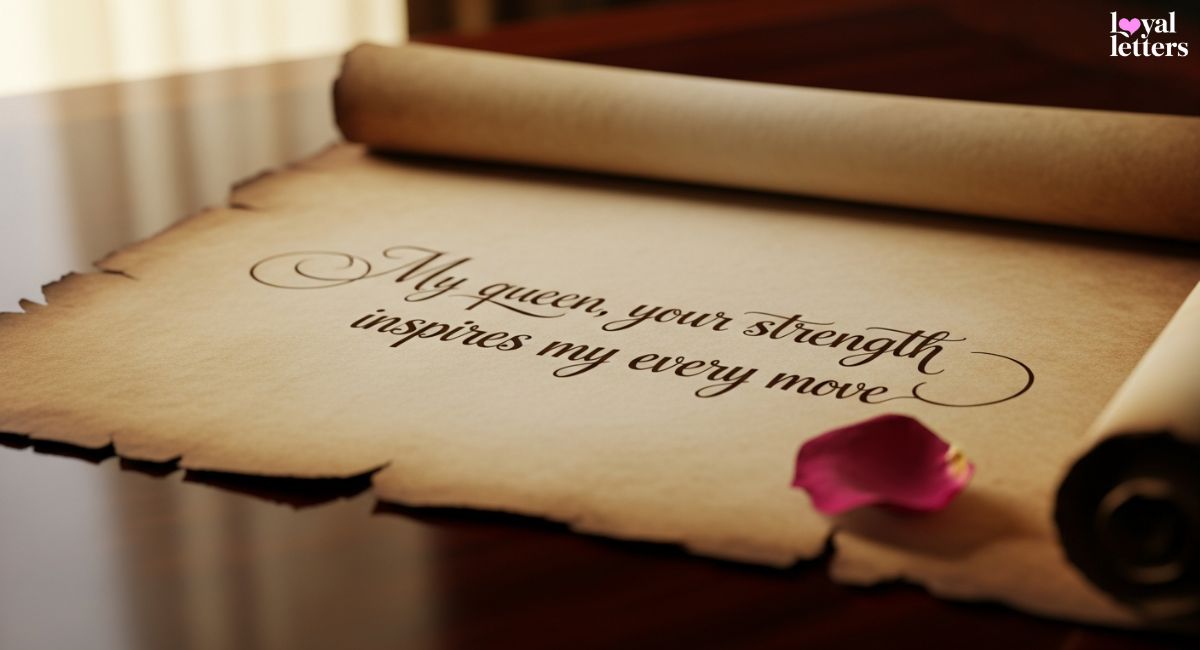 loyal
letters
My queen, your strength
inspires my every move